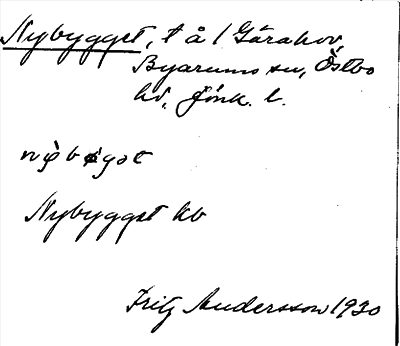 Nybygget, t å 1 Gårahov,
Byarums sn, Östbo
hd, Jönk. l.
Nybygget kb
Fritz Andersson 1930